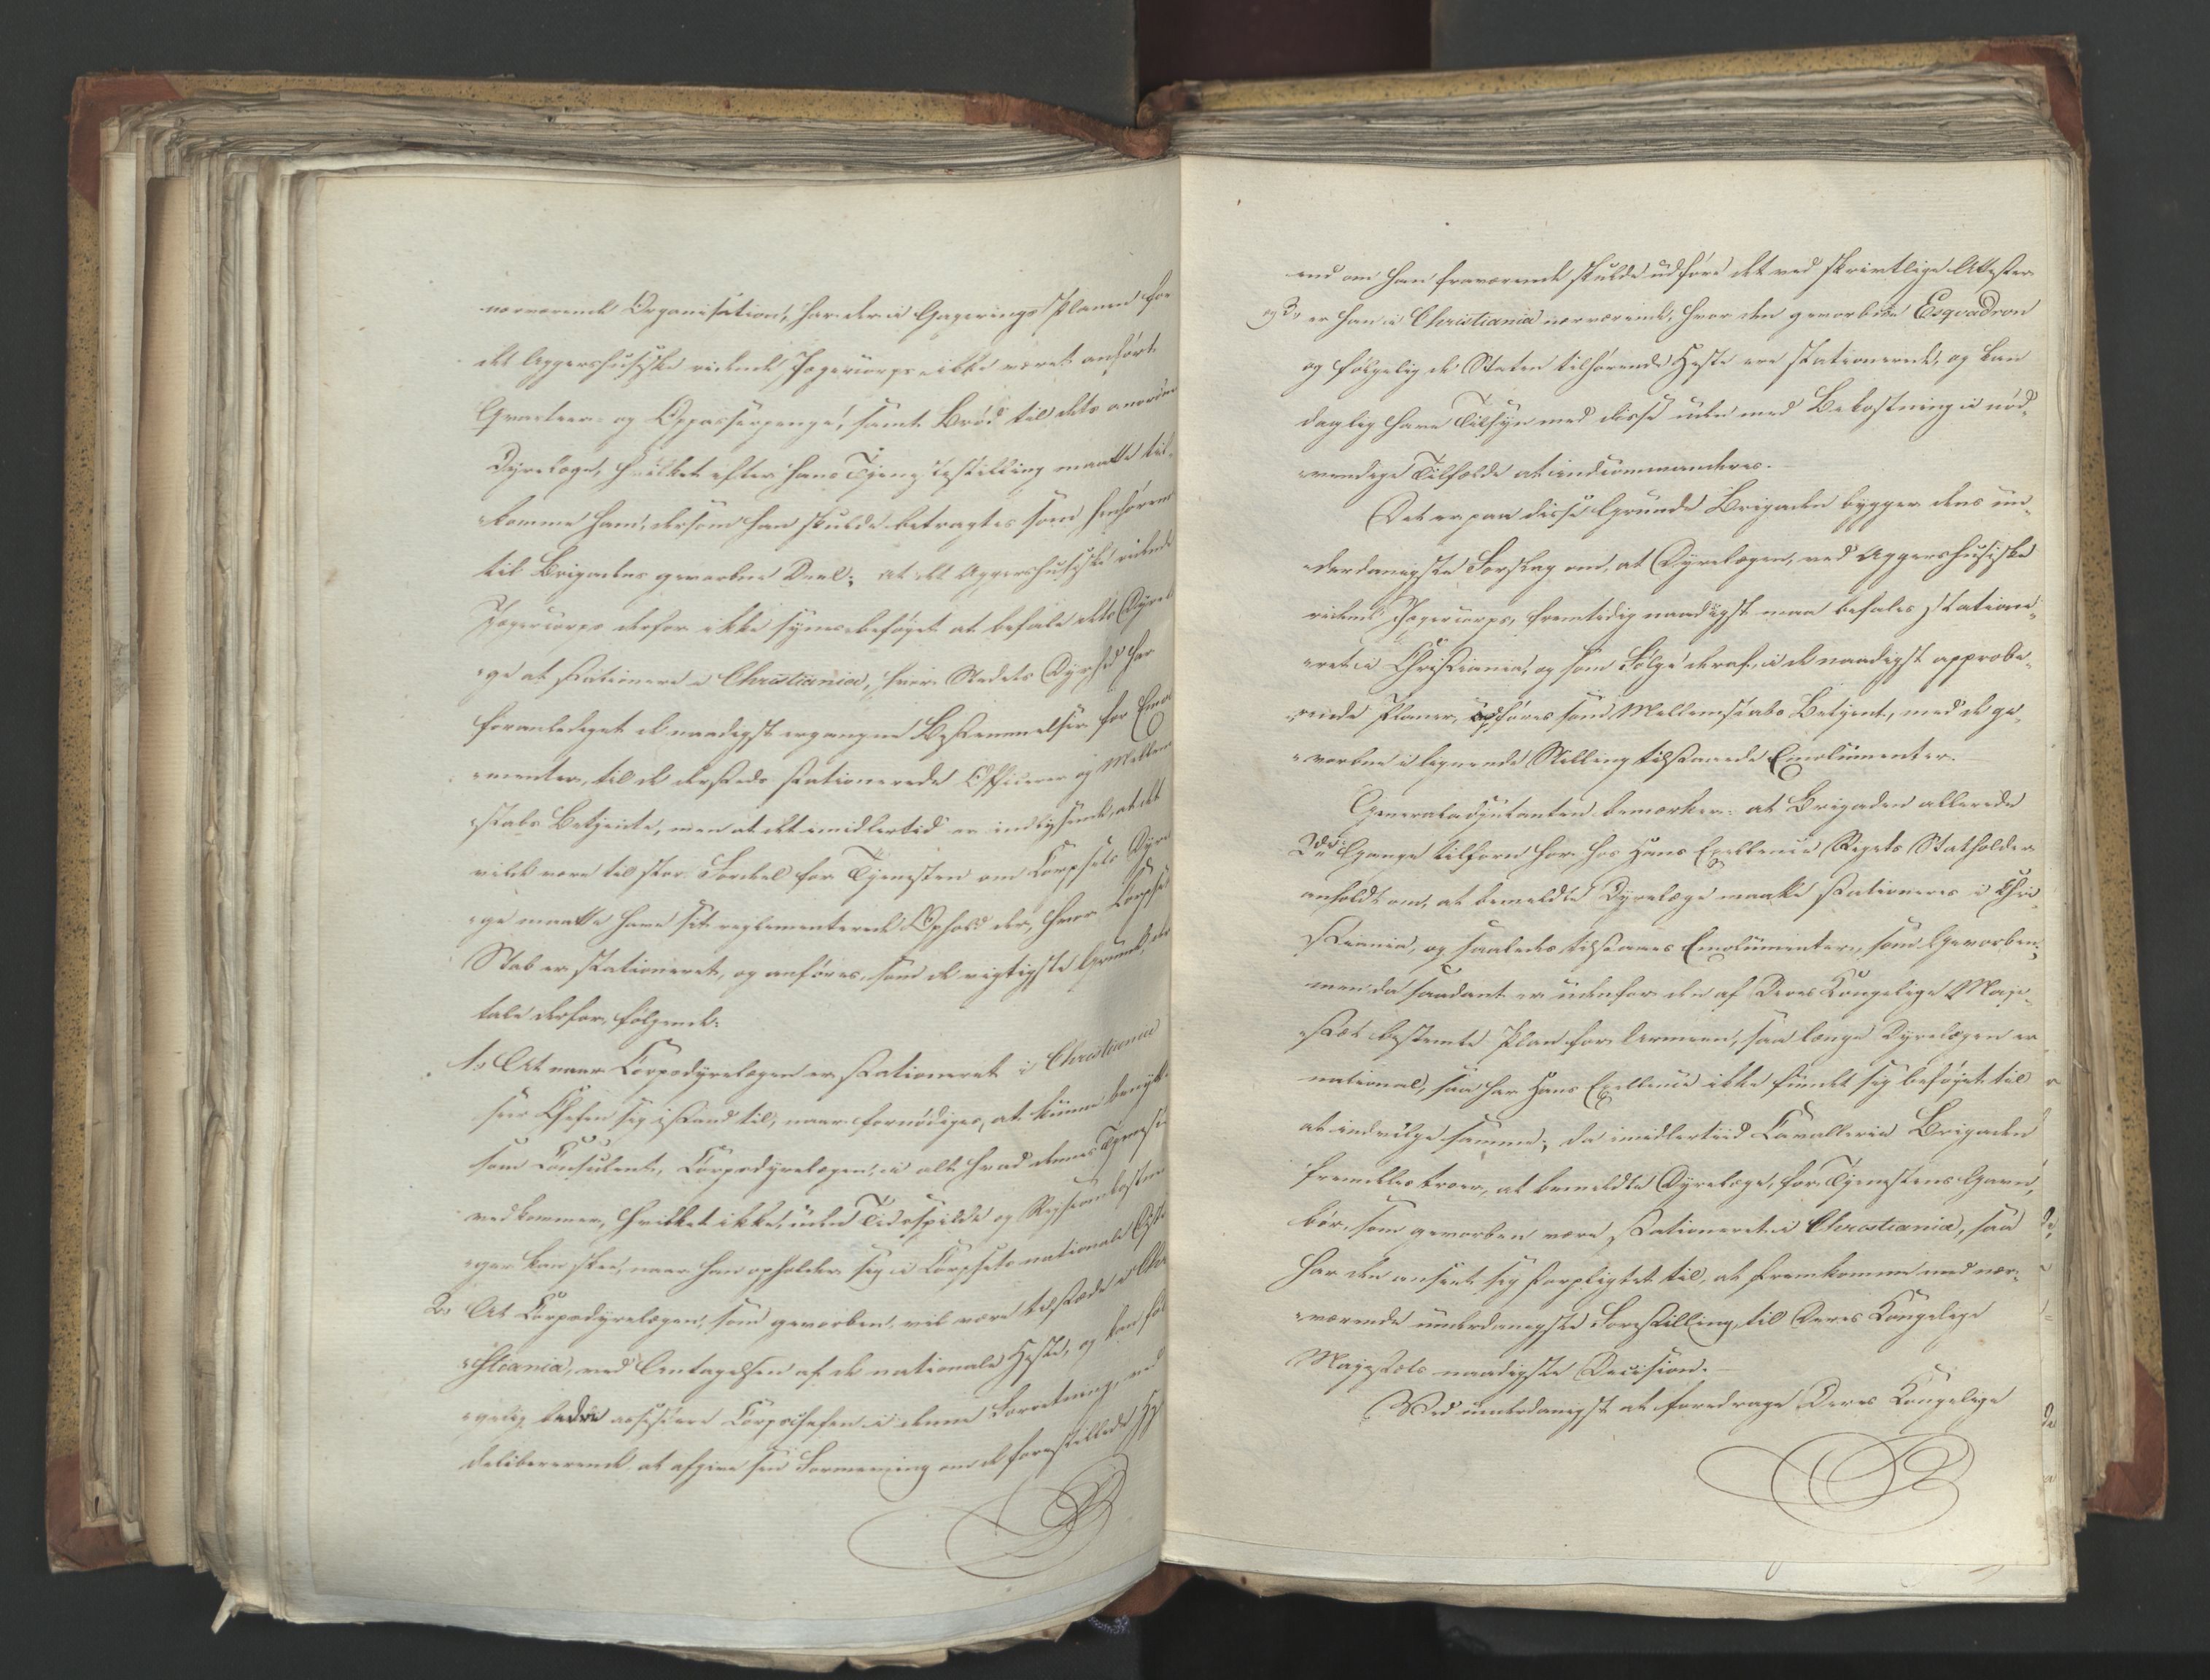 nærværende Organisation, har der i Gagerings Planen for
det Aggershusiske ridende Jægercorps ikke været anført
Qvarteer- og Oppasserpenge, samt Brød til dets anordnede
Dyrelæge, hvilket efter hans Tjeneste Stilling maatte til-
komme ham, dersom han skulde betragtes som henhørende
til Brigadens gevorbne Deel; at det Aggershusiske ridende
Jægercorps derfor ikke synes beføyet at befale dets Dyrelæ-
ge at stationere i Christiania, hvor Stedets Dyrhed har
foranlediget de naadigst ergangne Bestemmelser for Emol-
umenter, til de dersteds stationerede Officerer og Mellem-
stabs Betjente, men at det imidlertid er indlysende, at det
vilde være til stor Fordeel for Tjenesten om Corpsets Dyrelæ-
ge maatte have sit reglementerede Ophold der, hvor Corpsets
Stab er stationeret, og anføres, som de vigtigste Grunde, der
tale derfor, følgende:
1, At naar Corpsdyrelægen er stationeret i Christiania
seer Chefen sig istand til, naar fornødiges, at kunne benytte
som Consulent, Corpsdyrelægen, i alt hvad dennes Tjeneste
vedkommer, hvilket ikke, uden Tidsspilde og Rejseomkostnin-
ger kan skee, naar han opholder sig i Corpsets nationale District
2, At Corpsdyrelægen, som gevorben, vil være tilstede i Chri-
stiania, ved Antagelsen af de nationale Heste, og kan føl-
gelig bedre assistere Corpschefen i denne Forretning, ved
delibererende at afgive sin Formening om de forestillede Heste
end om han fraværende skulde udføre det ved skrivtlige Attester
og 3, er han i Christiania nærværende, hvor den gevorbne Esqvadron
og følgelig de Staten tilhørende Heste ere stationerede, og kan
daglig have Tilsyn med disse uden med Bekostning i nød-
vendige Tilfælde at indcommanderes.
Det er paa disse Grunde Brigaden bygger dens un-
derdanigste Forslag om, at Dyrelægen, ved Aggershusiske
ridende Jægercorps, fremtidig naadigst maa befales statione-
ret i Christiania, og som Følge deraf, i de naadigst approbe-
rede Planer, opføres som Mellemstabs Betjent, med de ge-
vorbne i lignende Stilling tilstaaede Emolumenter.
Generaladjutanten bemærker: at Brigaden allerede
2de Gange tilforn har hos Hans Excellence Rigets Statholder
anholdt om, at bemeldte Dyrelæge maatte stationeres i Chri-
stiania, og saaledes tilstaaes Emolumenter, som Gevorben;
men da saadant er udenfor den af Deres Kongelige Maje-
stæt bestemte Plan for Armeen, saa længe Dyrelægen er
national, saa har Hans Excellence ikke fundet sig beføyet til
at indvilge samme; da imidlertiid Cavallerie Brigaden
fremdeles troer, at bemeldte Dyrelæge, for Tjenestens Gavn,
bør som gevorben være stationeret i Christiania, saa
har den anseet sig forpligtet til, at fremkomme med nær-
værende underdanigste Forestilling til Deres Kongelige
Majestæts naadigste Decision.
Ved underdanigst at foredrage Deres Kongelige